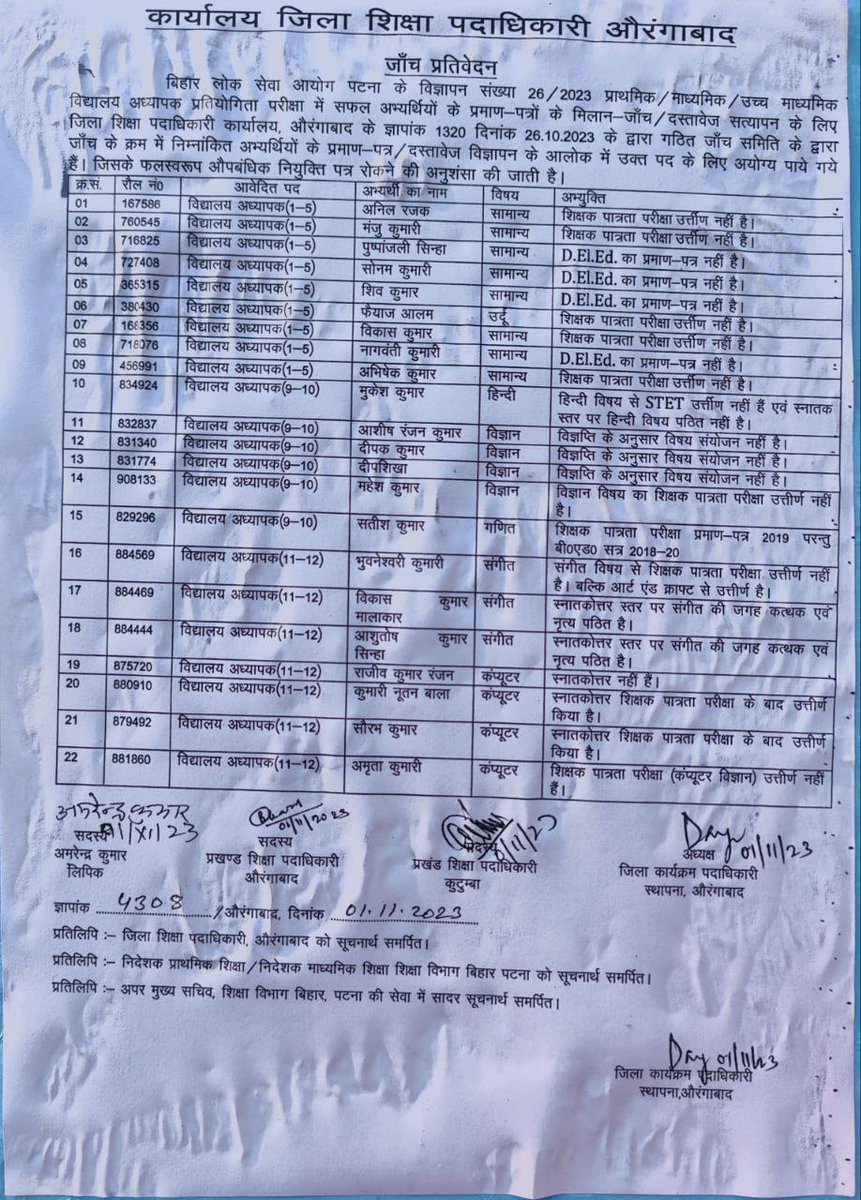 कार्यालय जिला शिक्षा पदाधिकारी औरंगाबाद
जाँच प्रतिवेदन
बिहार लोक सेवा आयोग पटना के विज्ञापन संख्या 26/2023 प्राथमिक/माध्यमिक/उच्च माध्यमिक
विद्यालय अध्यापक प्रतियोगिता परीक्षा में सफल अभ्यर्थियों के प्रमाण–पत्रों के मिलान–जाँच/दस्तावेज सत्यापन के लिए
जिला शिक्षा पदाधिकारी कार्यालय, औरंगाबाद के ज्ञापांक 1320 दिनांक 26.10.2023 के द्वारा गठित जाँच समिति के द्वारा
जाँच के क्रम में निम्नांकित अभ्यर्थियों के प्रमाण–पत्र/दस्तावेज विज्ञापन के आलोक में उक्त पद के लिए अयोग्य पाये गये
हैं। जिसके फलस्वरूप औपबंधिक नियुक्ति पत्र रोकने की अनुशंसा की जाती है।
क्र.सं. रौल नं0 आवेदित पद अभ्यर्थी का नाम विषय अभ्युक्ति
01 167586 विद्यालय अध्यापक(1–5) अनिल रजक सामान्य शिक्षक पात्रता परीक्षा उर्त्तीण नहीं है।
02 760545 विद्यालय अध्यापक(1–5) मंजु कुमारी सामान्य शिक्षक पात्रता परीक्षा उर्त्तीण नहीं है।
03 716825 विद्यालय अध्यापक(1–5) पुष्पांजली सिन्हा सामान्य D.El.Ed. का प्रमाण–पत्र नहीं है।
04 727408 विद्यालय अध्यापक(1–5) सोनम कुमारी सामान्य D.El.Ed. का प्रमाण–पत्र नहीं है।
05 365315 विद्यालय अध्यापक(1–5) शिव कुमार सामान्य D.El.Ed. का प्रमाण–पत्र नहीं है।
06 380430 विद्यालय अध्यापक(1–5) फैयाज आलम उर्दू शिक्षक पात्रता परीक्षा उर्त्तीण नहीं है।
07 168356 विद्यालय अध्यापक(1–5) विकास कुमार सामान्य शिक्षक पात्रता परीक्षा उर्त्तीण नहीं है।
08 718076 विद्यालय अध्यापक(1–5) नागवंती कुमारी सामान्य D.El.Ed. का प्रमाण–पत्र नहीं है।
09 456991 विद्यालय अध्यापक(1–5) अभिषेक कुमार सामान्य शिक्षक पात्रता परीक्षा उर्त्तीण नहीं है।
10 834924 विद्यालय अध्यापक(9–10) मुकेश कुमार हिन्दी हिन्दी विषय से STET उर्त्तीण नहीं हैं एवं स्नातक
स्तर पर हिन्दी विषय पठित नहीं है।
11 832837 विद्यालय अध्यापक(9–10) आशीष रंजन कुमार विज्ञान विज्ञप्ति के अनुसार विषय संयोजन नहीं है।
12 831340 विद्यालय अध्यापक(9–10) दीपक कुमार विज्ञान विज्ञप्ति के अनुसार विषय संयोजन नहीं है।
13 831774 विद्यालय अध्यापक(9–10) दीपशिखा विज्ञान विज्ञप्ति के अनुसार विषय संयोजन नहीं है।
14 908133 विद्यालय अध्यापक(9–10) महेश कुमार विज्ञान विज्ञान विषय का शिक्षक पात्रता परीक्षा उत्तीर्ण नहीं
है।
15 829296 विद्यालय अध्यापक(9–10) सतीश कुमार गणित शिक्षक पात्रता परीक्षा प्रमाण–पत्र 2019 परन्तु
बी०एड० सत्र 2018–20
16 884569 विद्यालय अध्यापक(11–12) भुवनेश्वरी कुमारी संगीत संगीत विषय से शिक्षक पात्रता परीक्षा उत्तीर्ण नहीं
है। बल्कि आर्ट एंड क्राफ्ट से उत्तीर्ण है।
17 884469 विद्यालय अध्यापक(11–12) विकास कुमार संगीत स्नातकोत्तर स्तर पर संगीत की जगह कत्थक एवं
मालाकार नृत्य पठित है।
18 884444 विद्यालय अध्यापक(11–12) आशुतोष कुमार संगीत स्नातकोत्तर स्तर पर संगीत की जगह कत्थक एवं
सिन्हा नृत्य पठित है।
19 875720 विद्यालय अध्यापक(11–12) राजीव कुमार रंजन कंप्यूटर स्नातकोत्तर नहीं हैं।
20 880910 विद्यालय अध्यापक(11–12) कुमारी नूतन बाला कंप्यूटर स्नातकोत्तर शिक्षक पात्रता परीक्षा के बाद उत्तीर्ण
किया है।
21 879492 विद्यालय अध्यापक(11–12) सौरभ कुमार कंप्यूटर स्नातकोत्तर शिक्षक पात्रता परीक्षा के बाद उत्तीर्ण
किया है।
22 881860 विद्यालय अध्यापक(11–12) अमृता कुमारी कंप्यूटर शिक्षक पात्रता परीक्षा (कंप्यूटर विज्ञान) उत्तीर्ण नहीं
हैं।
अमरेन्द्र कुमार 01/XI/23 01/11/2023 01/11/23
सदस्य सदस्य सदस्य अध्यक्ष
अमरेन्द्र कुमार प्रखण्ड शिक्षा पदाधिकारी प्रखंड शिक्षा पदाधिकारी जिला कार्यक्रम पदाधिकारी
लिपिक औरंगाबाद कुटुम्बा स्थापना, औरंगाबाद
ज्ञापांक 4308 /औरंगाबाद, दिनांक 01.11.2023
प्रतिलिपि :– जिला शिक्षा पदाधिकारी, औरंगाबाद को सूचनार्थ समर्पित।
प्रतिलिपि :– निदेशक प्राथमिक शिक्षा/निदेशक माध्यमिक शिक्षा शिक्षा विभाग बिहार पटना को सूचनार्थ समर्पित।
प्रतिलिपि :– अपर मुख्य सचिव, शिक्षा विभाग बिहार, पटना की सेवा में सादर सूचनार्थ समर्पित।
01/11/23
जिला कार्यक्रम पदाधिकारी
स्थापना,औरंगाबाद